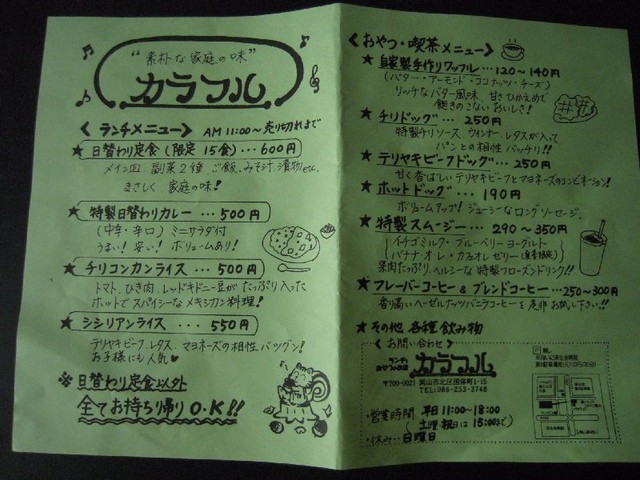 "素朴な家庭の味"
カラフル
<ランチメニュー> AM 11:00〜売り切れまで
★ 日替わり定食 (限定 15食)・・・600円
メイン皿、副菜2種、ご飯、みそ汁、漬物etc.
まさしく 家庭の味!
★ 特製日替わりカレー ・・・ 500円
(中辛・辛口) ミニサラダ付
うまい! 安い! ボリュームあり!
★ チリコンカンライス ・・・ 500円
トマト、ひき肉、レッドキドニー豆が たっぷり入った
ホットで スパイシーな メキシカン料理!
★ シシリアンライス ・・・ 550円
テリヤキビーフ、レタス、マヨネーズの相性 バツグン!
お子様にも人気♥
※ 日替わり定食以外
全てお持ち帰り O.K!!
<おやつ・喫茶メニュー>
★ 自家製手作りワッフル・・・120〜140円
(バター・アーモンド・ココナッツ・チーズ)
リッチなバター風味 甘さひかえめで
飽きのこないおいしさ!
★ チリドッグ ・・・ 250円
特製チリソース、ウインナー、レタスが入って
パンとの相性 バッチリ!!
★ テリヤキビーフドッグ ・・・ 250円
甘く香ばしい テリヤキビーフとマヨネーズのコンビネーション!
★ ホットドッグ ・・・ 190円
ボリュームアップ! ジューシーなロングソーセージ。
★ 特製スムージー ・・・ 290〜350円
イチゴミルク・ブルーベリーヨーグルト
バナナ・オ・レ・カフェオレゼリー
果肉たっぷり、ヘルシーな 特製フローズンドリンク!!
★ フレーバーコーヒー & ブレンドコーヒー・・・250〜300円
香り高いヘーゼルナッツバニラコーヒーを 是非 お試し下さい!!
★ その他 各種飲み物
<お問い合わせ>
ランチと
おやつのお店
カラフル
〒700-0021 岡山市北区国体町1-15
TEL: 086-253-3748
・営業時間 平日 11:00〜18:00
(土曜 祝日は 15:00まで)
・休み・・・日曜日